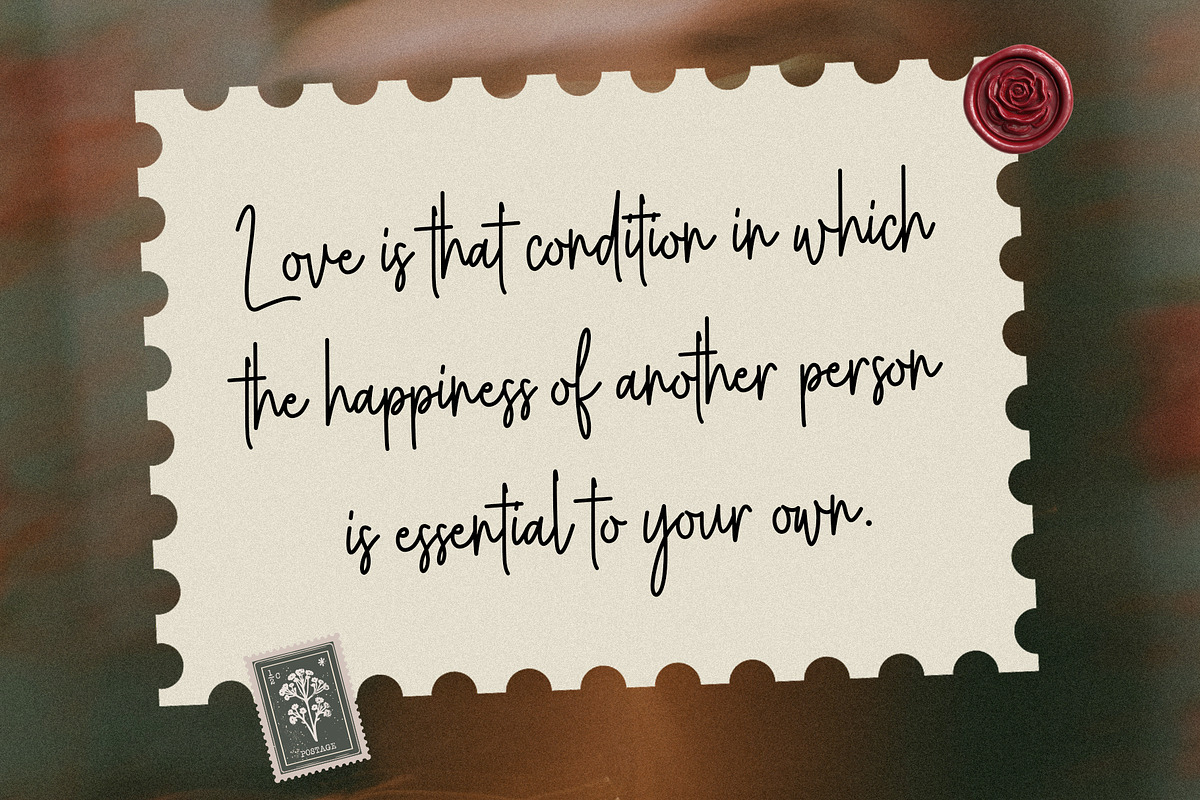 Love is that condition in which
the happiness of another person
is essential to your own.
½ C
POSTAGE